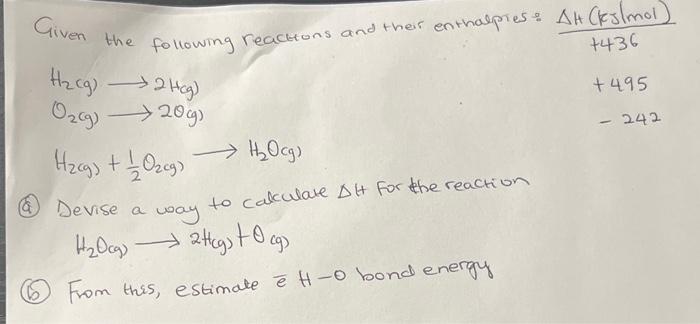 Given the following reactions and their enthalpies: ΔH (kJ/mol)
+436
H₂(g) → 2H(g)
+495
O₂(g) → 2O(g)
- 242
H₂(g) + 1/2 O₂(g) → H₂O(g)
ⓐ Devise a way to calculate ΔH for the reaction
H₂O(g) → 2H(g) + O(g)
ⓑ From this, estimate ē H-O bond energy